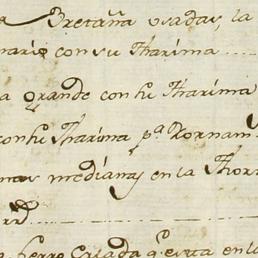 Bretaña usadas, la
con su Tharima
a grande con su Tharima
con su Tharima pª
mas medianas en la
fierro q esta en la